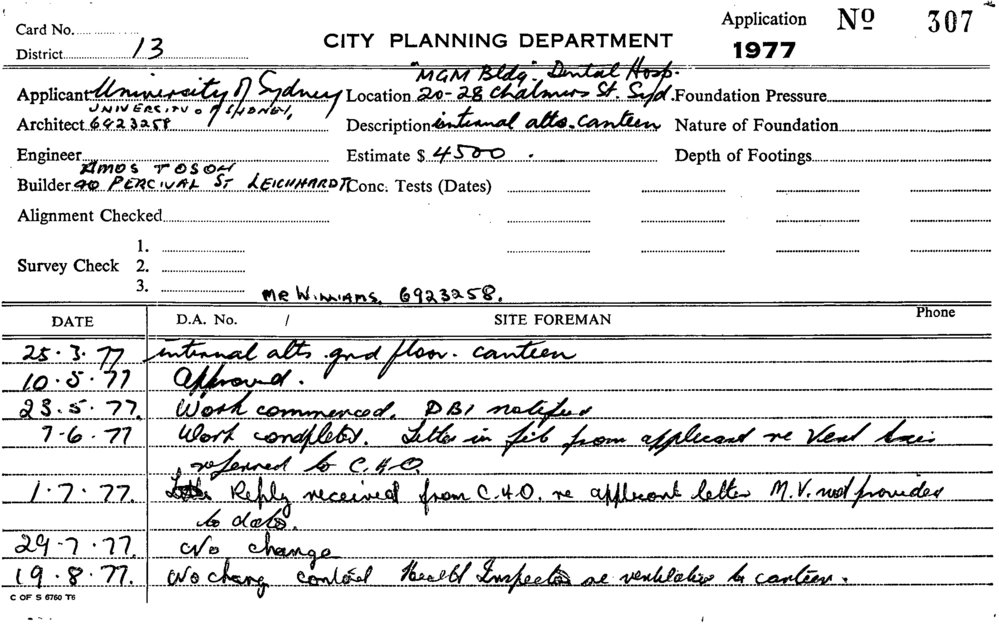 Card No. Application Nº 307
District 13 CITY PLANNING DEPARTMENT 1977
"MGM Bldg". Dental Hosp.
Applicant University of Sydney Location 20-28 Chalmers St. Syd. Foundation Pressure
UNIVERSITY OF SYDNEY,
Architect 6923258 Description internal alts. canteen Nature of Foundation
Engineer Estimate $ 4500 . Depth of Footings
AMOS TOSON
Builder 90 PERCIVAL ST LEICHHARDT Conc. Tests (Dates)
Alignment Checked
1.
Survey Check 2.
3.
MR WILLIAMS. 6923258.
DATE D.A. No. / SITE FOREMAN Phone
25.3.77 internal alts. gnd floor. canteen
10.5.77 Approved.
23.5.77. Work commenced. DBI notified
7-6.77 Work completed. Letter in file from applicant re Vent
referred to C.H.O.
1.7.77. Reply received from C.H.O. re applicant letter M.V. not provided
to date.
29-7.77. No change
19.8.77. No change contact Health Inspector re ventilation to canteen.
C OF S 6760 T6